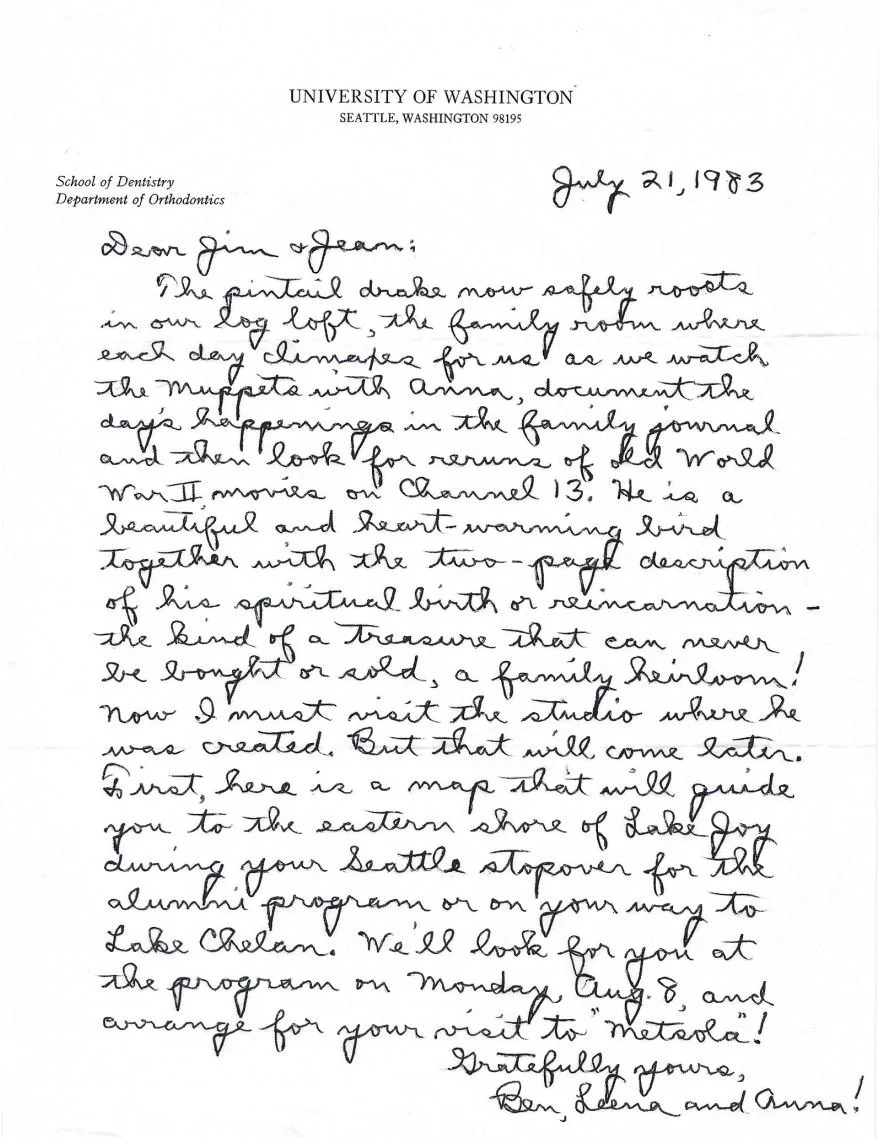 UNIVERSITY OF WASHINGTON
SEATTLE, WASHINGTON 98195
School of Dentistry
Department of Orthodontics
July 21, 1983
Dear Jim & Jean:
The pintail drake now safely roosts
in our log loft, the family room where
each day climaxes for us as we watch
the Muppets with Anna, document the
day's happenings in the family journal
and then look for reruns of old World
War II movies on Channel 13. He is a
beautiful and heart-warming bird
together with the two-page description
of his spiritual birth or reincarnation –
the kind of a treasure that can never
be bought or sold, a family heirloom!
Now I must visit the studio where he
was created. But that will come later.
First, here is a map that will guide
you to the eastern shore of Lake Joy
during your Seattle stopover for the
alumni program or on your way to
Lake Chelan. We'll look for you at
the program on Monday, Aug. 8, and
arrange for your visit to "Metsola"!
Gratefully yours,
Ben, Leena and Anna!